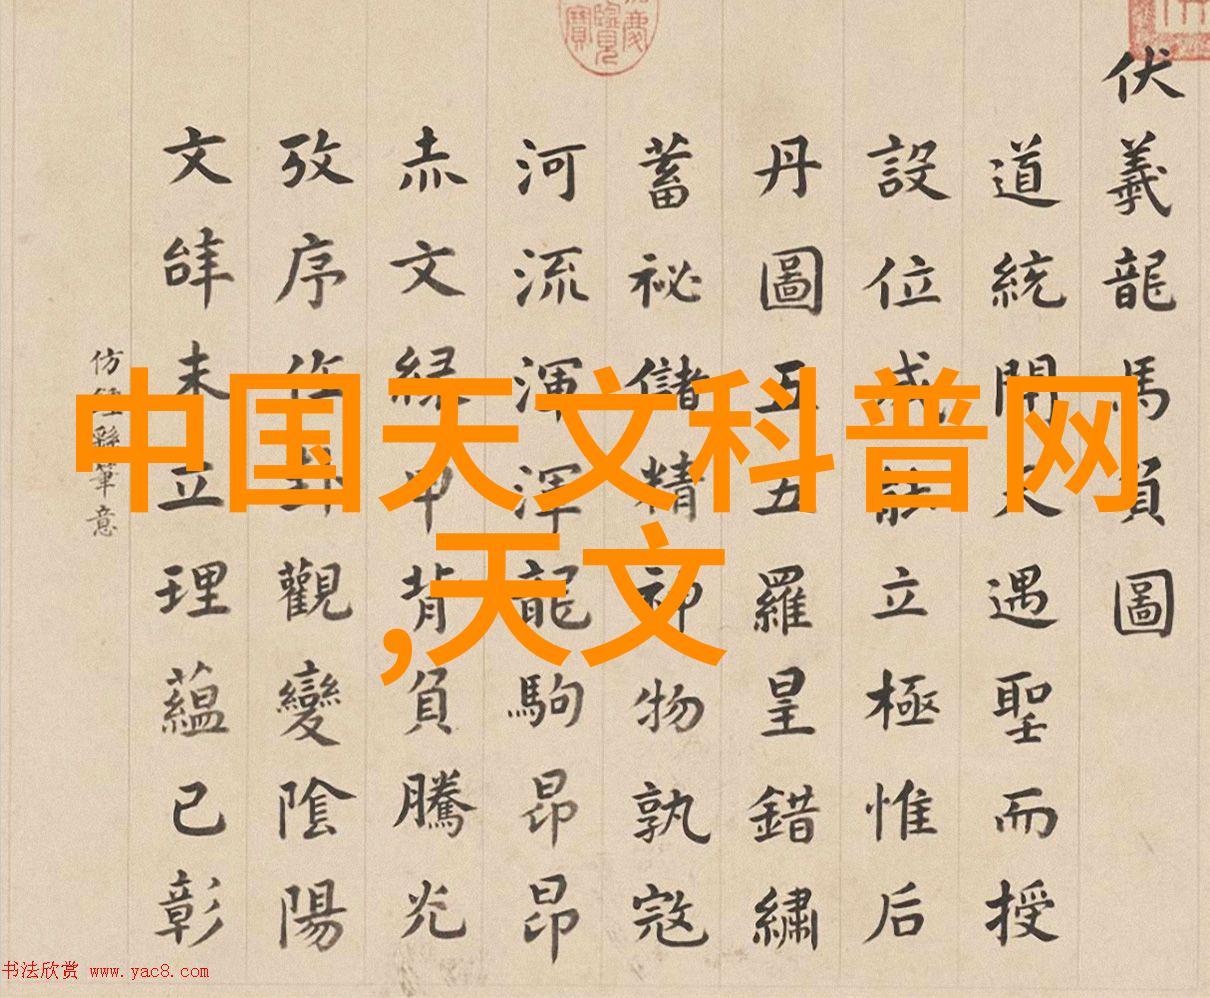 伏羲龍馬負圖
道統開天遇聖而授
設位成能立極惟后
丹圖五五羅皇錯繡
蓄祕儲精神物孰寇
河流渾渾龍駒昂昂
赤文綠甲背負騰光
攷序作卦觀變陰陽
文皣未立理蘊已彰
筆意
中国天文科普网
,天文
书法欣赏 www.yac8.com